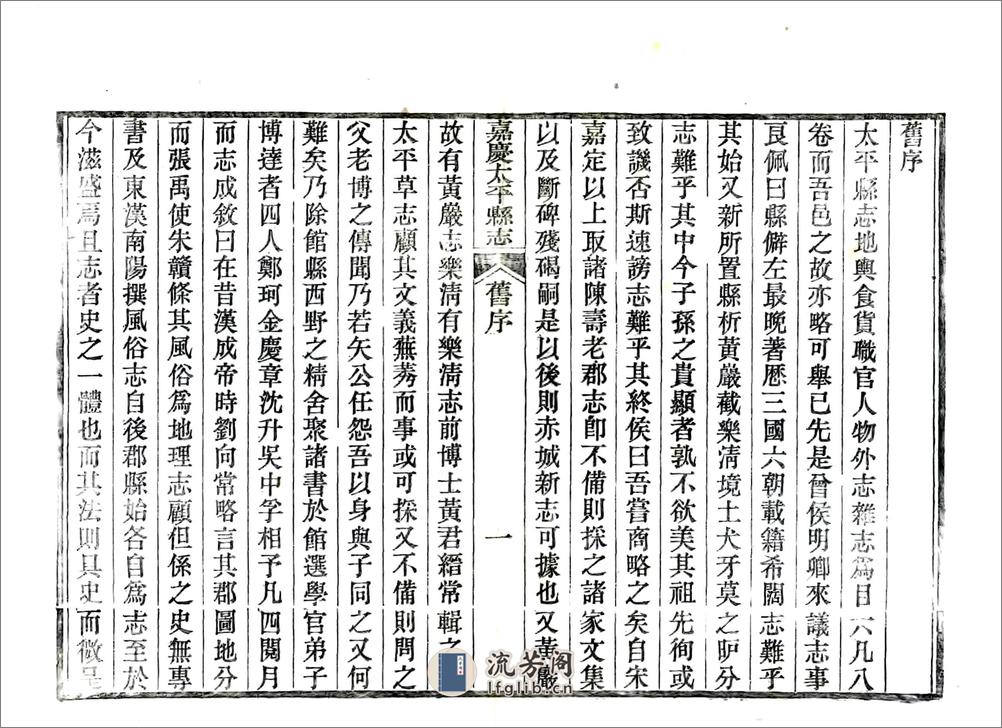 舊序
太平縣志地輿食貨職官人物外志雜志爲目六凡八
卷而吾邑之故亦略可舉已先是曾侯明卿來議志事
良佩曰縣僻左最晚著歷三國六朝載籍希闊志難乎
其始又新所置縣析黃嚴截樂淸境土犬牙莫之𭄿分
志難乎其中今子孫之貴顯者孰不欲美其祖先徇或
致譏否斯速謗志難乎其終侯曰吾嘗商略之矣自宋
嘉定以上取諸陳壽老郡志卽不備則採之諸家文集
以及斷碑殘碣嗣是以後則赤城新志可據也又黃嚴
嘉慶太平縣志
舊序
一
故有黃嚴志樂淸有樂淸志前博士黃君縉常輯之
太平草志顧其文義蕪莠而事或可採又不備則問之
父老博之傳聞乃若矢公任怨吾以身與子同之又何
難矣乃除館縣西野之精舍聚諸書於館選學官弟子
博達者四人鄭珂金慶章沈升吳中孚相予凡四閱月
而志成敘曰在昔漢成帝時劉向常略言其郡圖地分
而張禹使朱贛條其風俗爲地理志顧但係之史無專
書及東漢南陽撰風俗志自後郡縣始各自爲志至於
今滋盛焉且志者史之一體也而其法則具史而微是
流芳閣
lfglib.cn